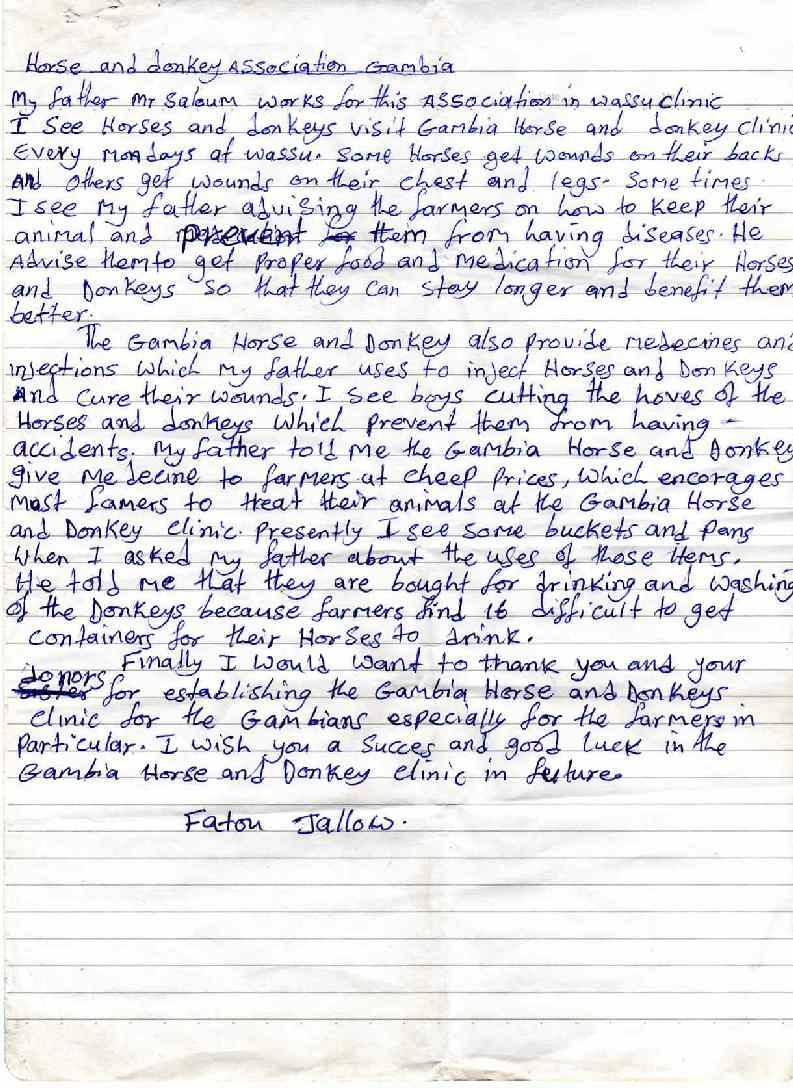 Horse and donkey Association Gambia
My father Mr Saloum works for this Association in wassu clinic
I see Horses and donkeys visit Gambia Horse and donkey clinic
Every mondays at wassu. Some Horses get wounds on their backs
And others get wounds on their chest and legs. Some times
I see my father advising the farmers on how to keep their
animal and prevent them from having diseases. He
Advise them to get proper food and medication for their Horses
and Donkeys so that they can stay longer and benefit them
better.
The Gambia Horse and Donkey also provide medecines and
injections which my father uses to inject Horses and Donkeys
And cure their wounds. I see boys cutting the hoves of the
Horses and donkeys which prevent them from having -
accidents. My father told me the Gambia Horse and Donkey
give medecine to farmers at cheep prices, which encorages
most famers to treat their animals at the Gambia Horse
and Donkey clinic. Presently I see some buckets and pans
when I asked my father about the uses of those items.
He told me that they are bought for drinking and washing
of the Donkeys because farmers find it difficult to get
containers for their Horses to drink.
Finally I would want to thank you and your
donors for establishing the Gambia Horse and Donkeys
clinic for the Gambians especially for the farmers in
particular. I wish you a succes and good luck in the
Gambia Horse and Donkey clinic in future.
Fatou Jallow.